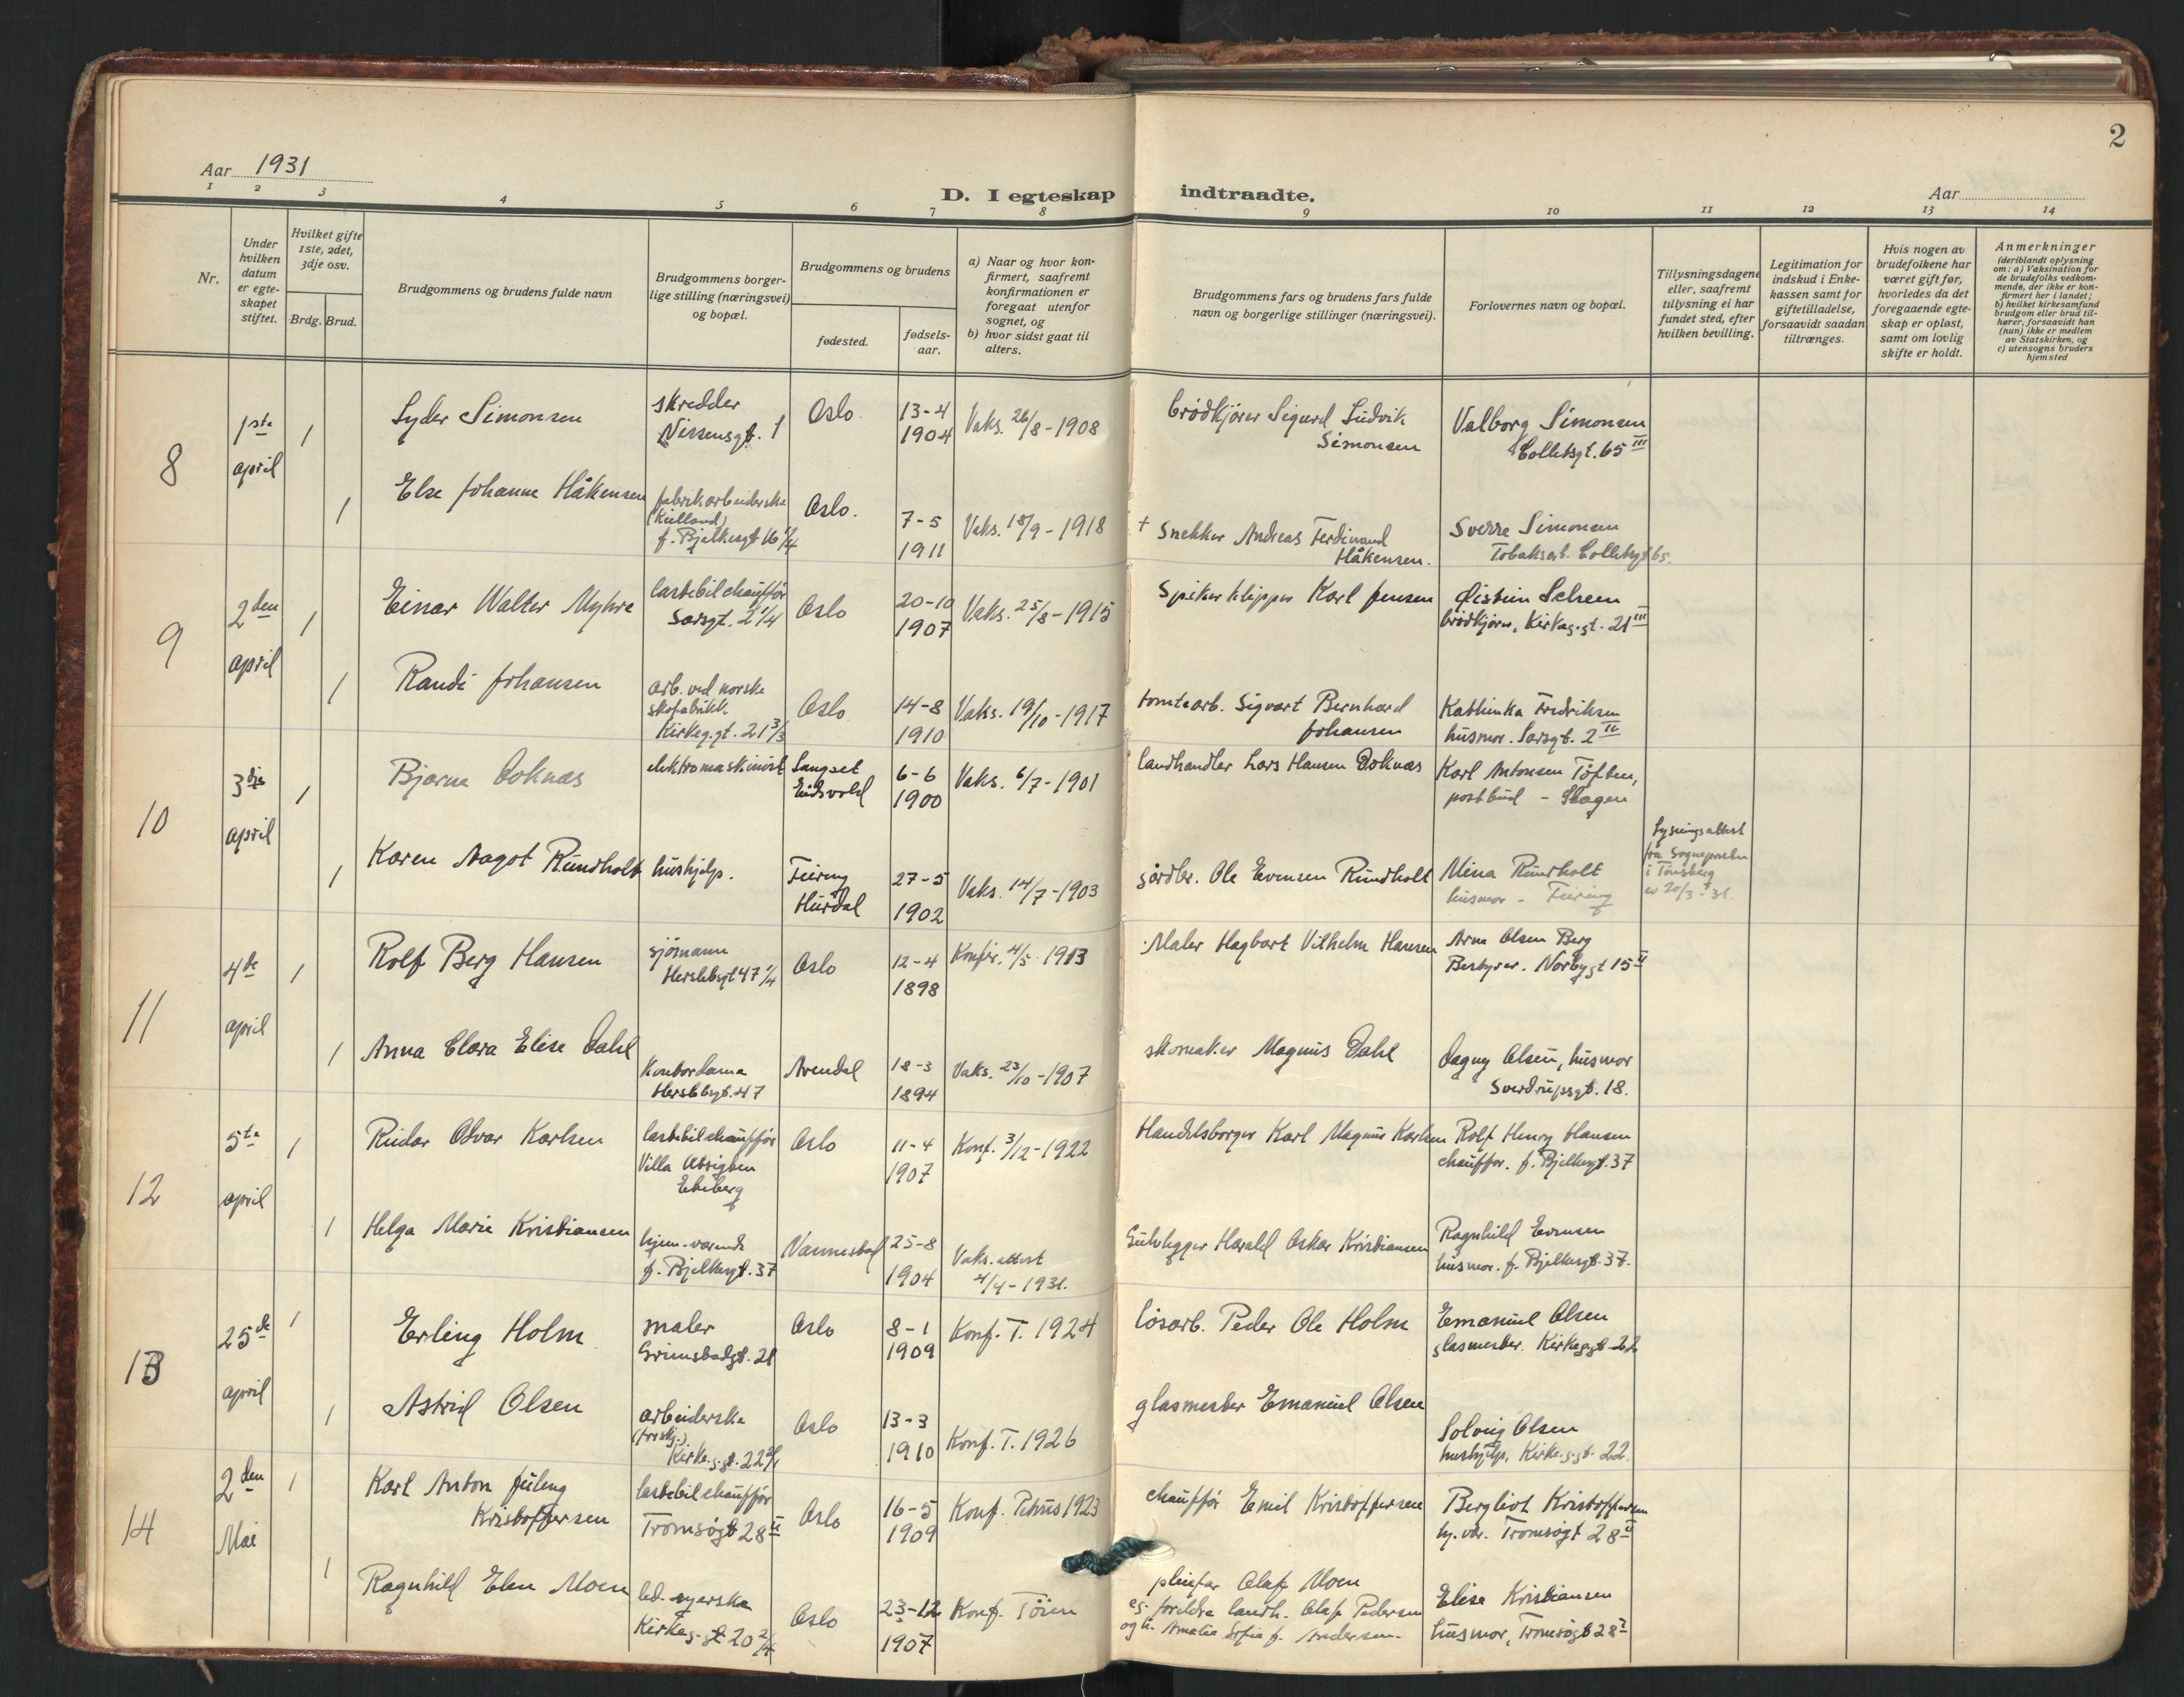 2
Aar 1931
D. I egteskap indtraadte.
Aar
1 2 3 4 5 6 7 8 9 10 11 12 13 14
Nr.
Under
hvilken
datum
er egte-
skapet
stiftet.
Hvilket gifte
1ste, 2det,
3dje osv.
Brdg. Brud.
Brudgommens og brudens fulde navn
Brudgommens borger-
lige stilling (næringsvei)
og bopæl.
Brudgommens og brudens
fødested.
fødsels-
aar.
a) Naar og hvor kon-
firmert, saafremt
konfirmationen er
foregaat utenfor
sognet, og
b) hvor sidst gaat til
alters.
Brudgommens fars og brudens fars fulde
navn og borgerlige stillinger (næringsvei).
Forlovernes navn og bopæl.
Tillysningsdagene
eller, saafremt
tillysning ei har
fundet sted, efter
hvilken bevilling.
Legitimation for
indskud i Enke-
kassen samt for
giftetilladelse,
forsaavidt saadan
tiltrænges.
Hvis nogen av
brudefolkene har
været gift før,
hvorledes da det
foregaaende egte-
skap er opløst,
samt om lovlig
skifte er holdt.
Anmerkninger
(deriblandt oplysning
om: a) Vaksination for
de brudefolks vedkom-
mende, der ikke er kon-
firmert her i landet;
b) hvilket kirkesamfund
brudgom eller brud til-
hører, forsaavidt han
(hun) ikke er medlem
av Statskirken, og
c) utensogns bruders
hjemsted
8
1ste
april
1
Syder Simonsen
skredder
Nissensgt. 1
Oslo
13-4
1904
Vaks. 26/8-1908
brödkjører Sigurd Ludvik
Simonsen
Valborg Simonsen
Colletsgt. 65 III
1
Else Johanne Håkensen
fabrikarbeiderske
(Kielland)
f. Bjelkesgt 16 1/4
Oslo.
7-5
1911
Vaks. 18/9-1918
+ Snekker Andreas Ferdinand
Håkensen.
Sverre Simonsen
Tobaksarb. Colletsgt 65.
9
2den
april
1
Einar Walter Myhre
lastebilchauffør
Sarsgt. 2 1/4
Oslo
20-10
1907
Vaks. 25/8-1915
Spikerklipper Karl Jensen
Øistein Scheen
brödkjører, Kirkeg.gt. 21 III
1
Randi Johansen
arb. ved norske
skofabrikk
Kirkeg.gt. 21 3/3
Oslo
14-8
1910
Vaks. 19/10-1917
tomtearb. Sigvart Bernhard
Johansen
Kathinka Fredriksen
husmor. Sarsgt. 2 IV
10
3dje
april
1
Bjarne Doknæs
elektromaskinist
Langset
Eidsvold
6-6
1900
Vaks. 6/7-1901
landhandler Lars Hansen Doknæs
Karl Antonsen Töften,
postbud - Skagen
1
Karen Aagot Rundholt
hushjelp.
Feiring
Hurdal
27-5
1902
Vaks. 14/7-1903
gårdbr. Ole Evensen Rundholt
Mina Rundholt
husmor - Feiring
Lysningsattest
fra Sognepresten
i Tönsberg
av 20/3 - 31.
11
4de
april
1
Rolf Berg Hansen
sjömann
Herslebsgt 47 1/4
Oslo
12-4
1898
Konfir. 4/5 1913
Maler Hagbart Vilhelm Hansen
Arne Olsen Berg
Bestyrer. Norbygt 15 II
1
Anna Clara Elise Dahl
Kontordame
Herslebsgt. 47
Arendal
18-3
1894
Vaks. 23/10-1907
skomaker Magnus Dahl
Dagny Olsen, husmor
Sverdrupsgt. 18.
12
5te
april
1
Reidar Alvar Karlsen
lastebilchauffør
Villa Utsigten
Ekeberg
Oslo
11-4
1907
Konf. 3/12-1922
Handelsborger Karl Magnus Karlsen
Rolf Henry Hansen
chauffør. f. Bjelkesgt. 37
1
Helga Marie Kristiansen
hjem-værende
f. Bjelkesgt. 37
25-8
1904
Vaks. attest
4/4-1931.
Gulvlegger Harald Oskar Kristiansen
Ragnhild Evensen
husmor. f. Bjelkesgt. 37.
13
25de
april
1
Erling Holm
maler
Grimstadgt. 21
Oslo
8-1
1909
Konf. T. 1924
løsarb. Peder Ole Holm
Emanuel Olsen
glasmester. Kirkeg.gt. 22
1
Astrid Olsen
arbeiderske
Kirkeg.gt. 22
Oslo
13-3
1910
Konf. T. 1926
glasmester Emanuel Olsen
Solveig Olsen
hushjelp, Kirkeg.gt. 22.
14
2den
Mai
1
Karl Anton Juling
Kristoffersen
lastebilchauffør
Tromsøgt 28 II
Oslo
16-5
1909
Konf. Petrus 1923
chauffør Emil Kristoffersen
Bergliot Kristoffersen
hj. vær. Tromsøgt 28 II
1
Ragnhild Elen Moen
led. syerske
Kirkeg.gt 20 2/4
Oslo
23-12
1907
Konf. Töien
pleiefar Olaf Moen
eg. foreldre landh. Olaf Pedersen
og h. Amalie Sofie f. Andersen.
Elise Kristiansen
husmor, Tromsøgt 28 I